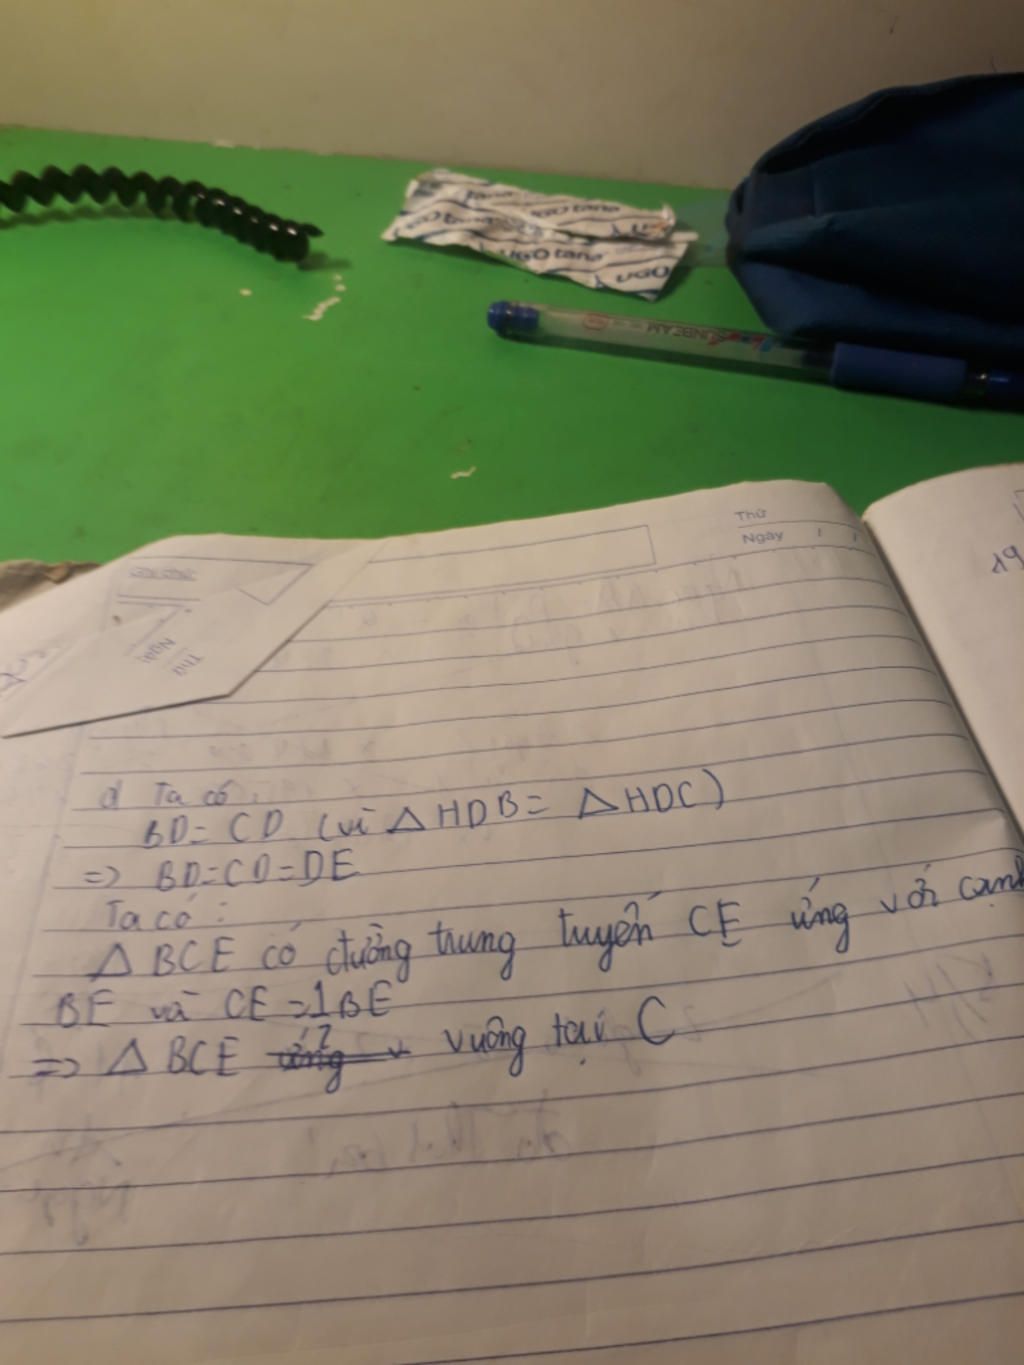 UGO tana
UGO
SUNBEAM
Thứ
Ngày / /
Thứ
Ngày
19
d Ta có.
BD = CD (vì △HDB = △HDC)
=> BD=CD=DE
Ta có :
△ BCE có đường trung tuyến CE ứng với cạnh
BE và CE = 1 BE
2
=> △ BCE vuông tại C